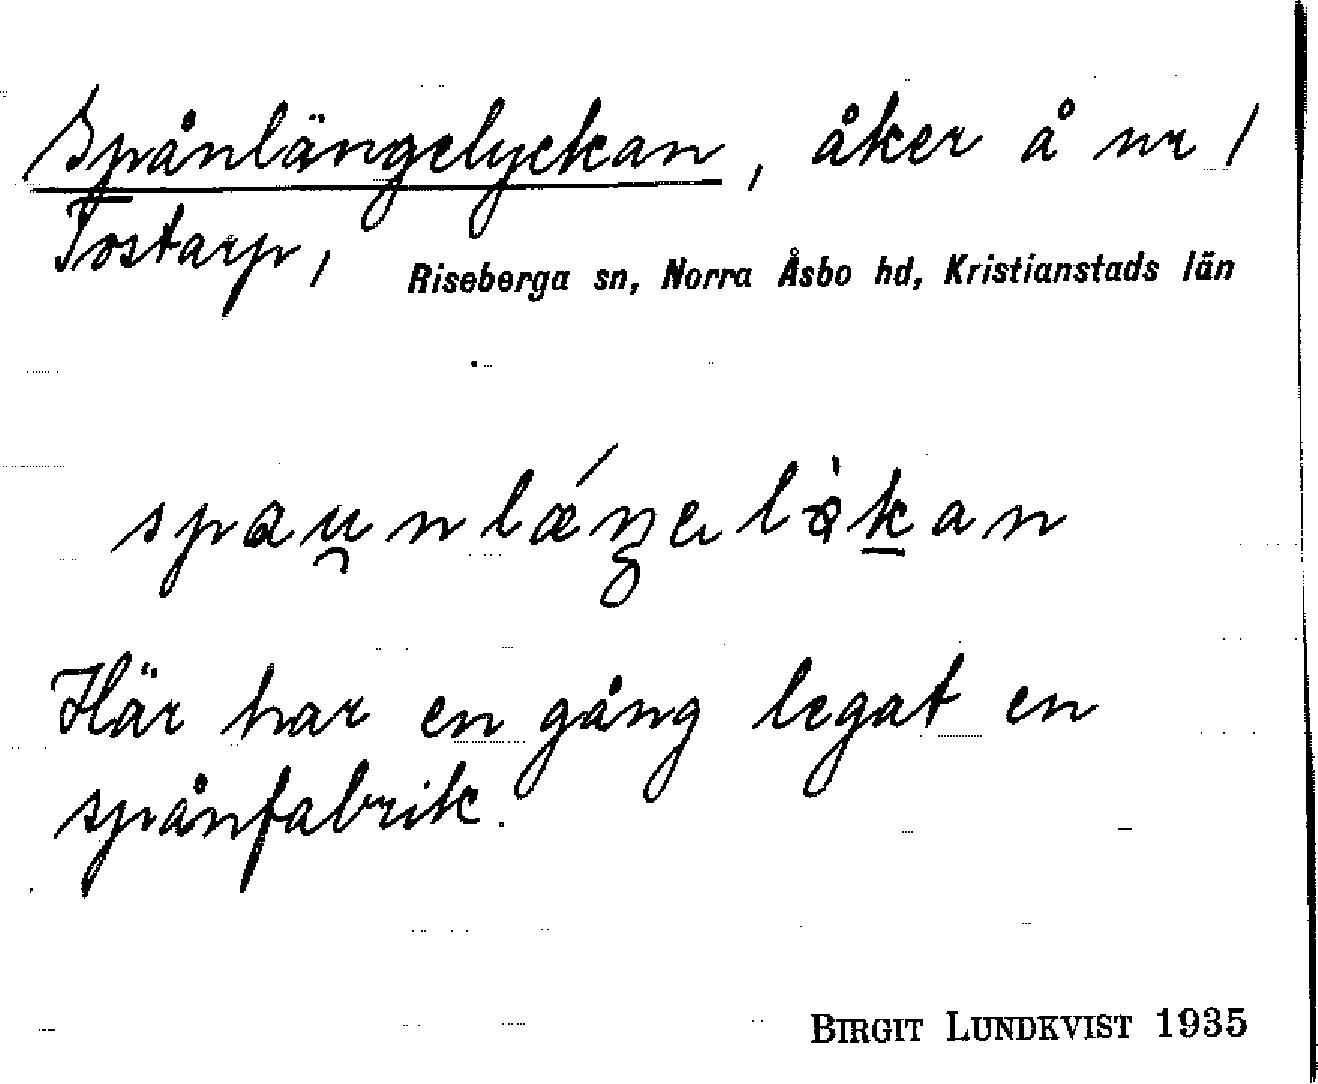 Spånlängelyckan, åker å nr 1
Tostarp,
Riseberga sn, Norra Åsbo hd, Kristianstads län
spau̯nlǽŋəlø̀kan
Här har en gång legat en
spånfabrik.
BIRGIT LUNDKVIST 1935